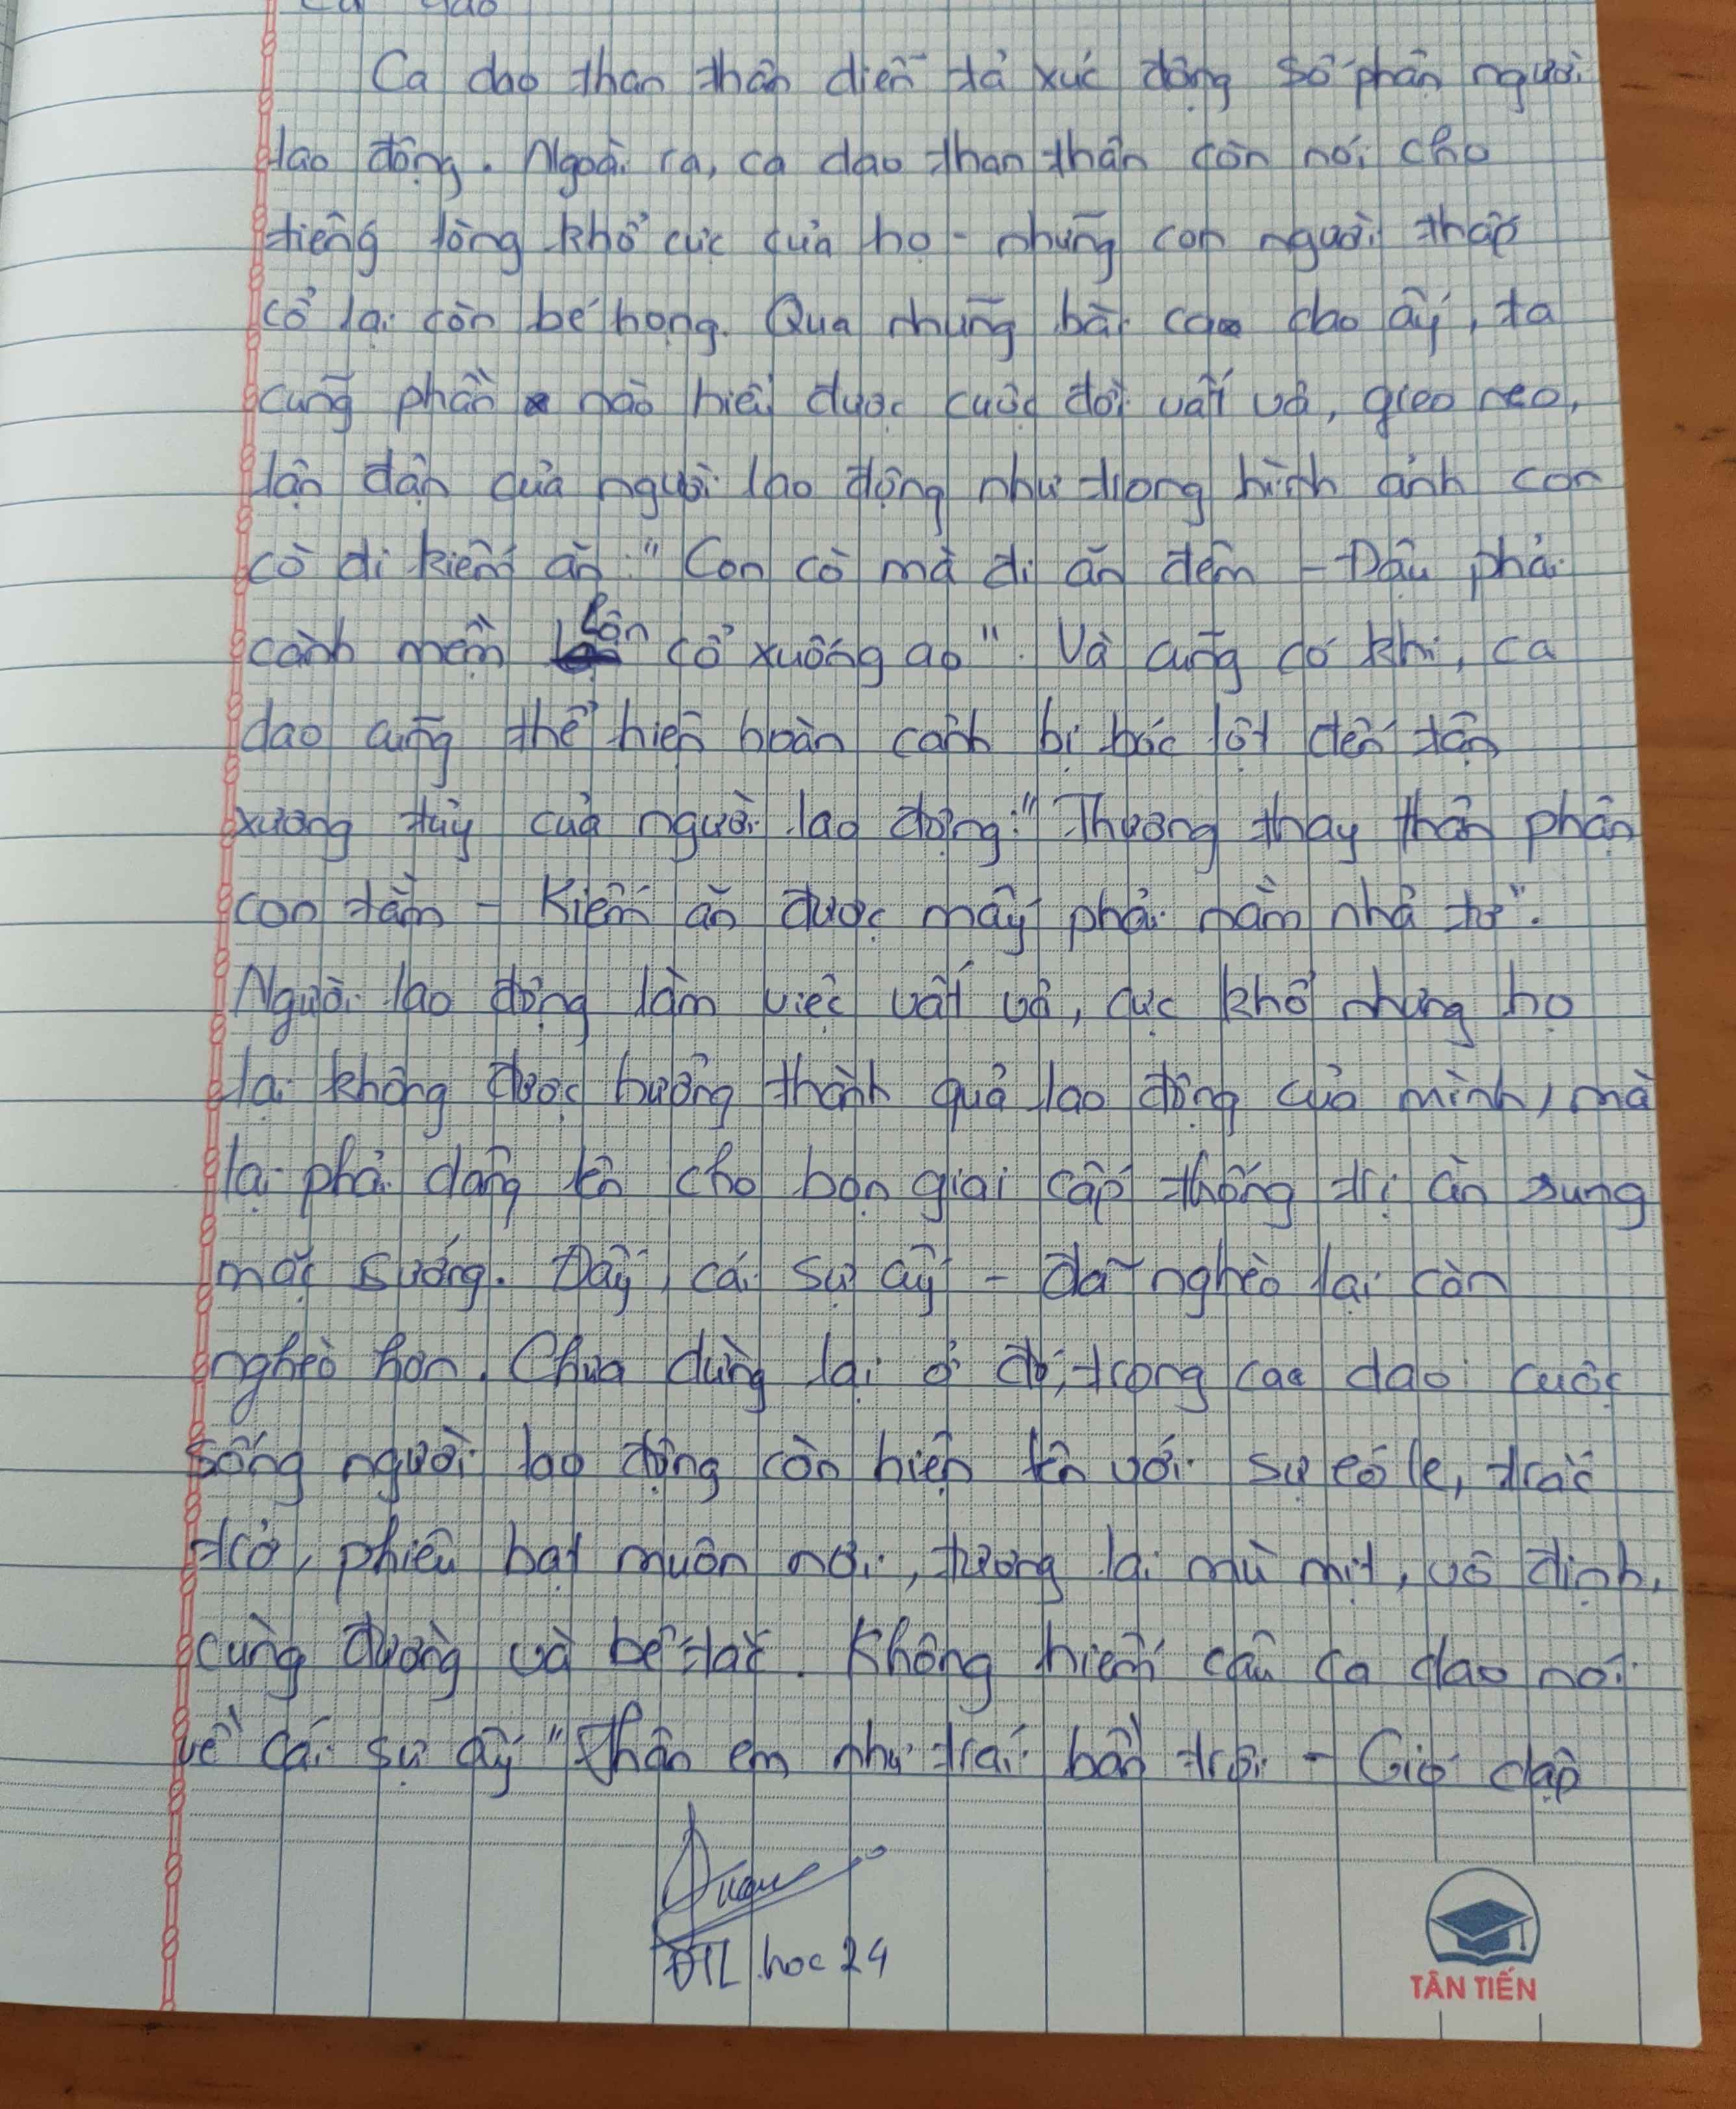 Ca dao than thân diễn tả xúc động số phận người
lao động. Ngoài ra, ca dao than thân còn nói cho
tiếng lòng khổ cực của họ - những con người thấp
cổ lại còn bé họng. Qua những bài cao dao ấy, ta
cũng phần nào hiểu được cuộc đời vất vả, gieo neo,
lận đận của người lao động như trong hình ảnh con
cò đi kiếm ăn: "Con cò mà đi ăn đêm - Đậu phải
cành mềm lộn cổ xuống ao". Và cũng có khi, ca
dao cũng thể hiện hoàn cảnh bị bóc lột đến tận
xương tủy của người lao động: "Thương thay thân phận
con tằm - Kiếm ăn được mấy phải nằm nhả tơ".
Người lao động làm việc vất vả, cực khổ nhưng họ
lại không được hưởng thành quả lao động của mình, mà
lại phải dâng lên cho bọn giai cấp thống trị ăn sung
mặc sướng. Đấy, cái sự ấy - đã nghèo lại còn
nghèo hơn. Chưa dừng lại ở đó, trong cao dao cuộc
sống người lao động còn hiện lên với sự éo le, trắc
trở, phiêu bạt muôn nơi, tương lai mù mịt, vô định,
cùng đường và bế tắc. Không hiếm câu ca dao nói
về cái sự ấy "Thân em như trái bần trôi - Gió dập
ĐTL hoc 24
TÂN TIẾN